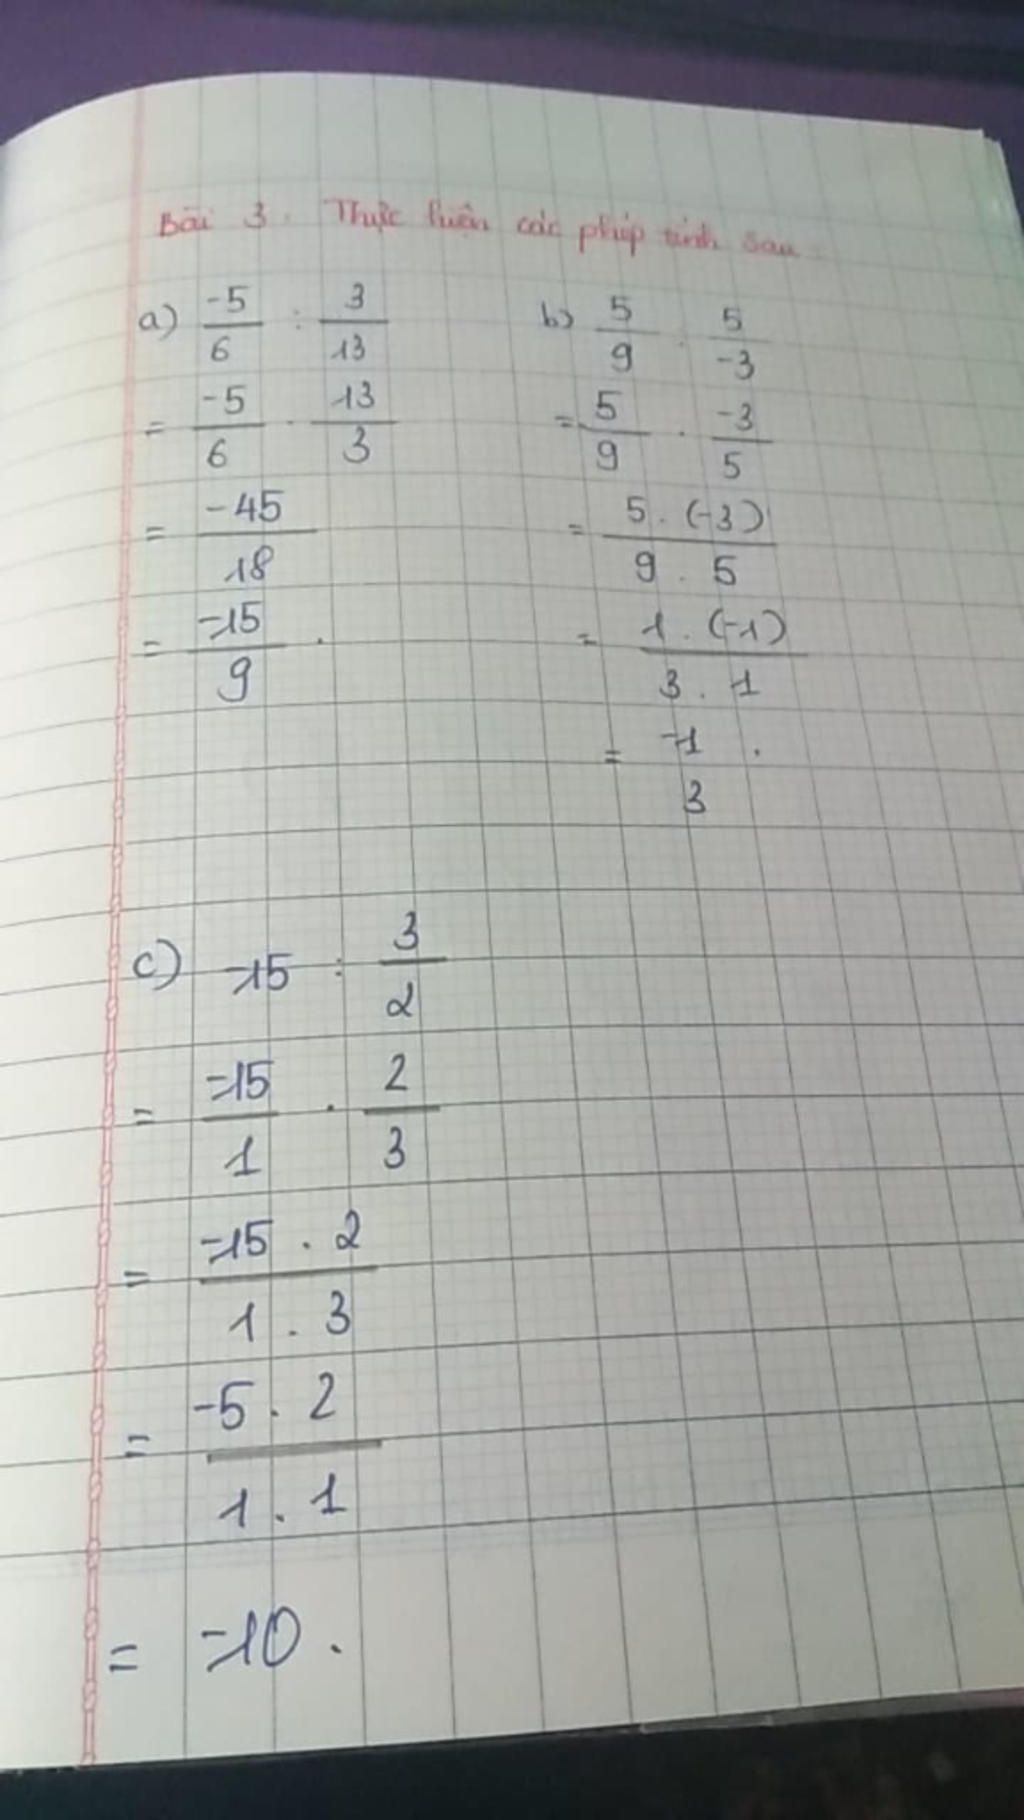 Bài 3. Thực hiện các phép tính sau
a) -5/6 : 3/13
= -5/6 . 13/3
= -45/18
= -15/9 .
b) 5/9 . 5/-3
= 5/9 . -3/5
= 5 . (-3)/9 . 5
= 1 . (-1)/3 . 1
= -1/3 .
c) -15 : 3/2
= -15/1 . 2/3
= -15 . 2/1 . 3
= -5 . 2/1 . 1
= -10 .